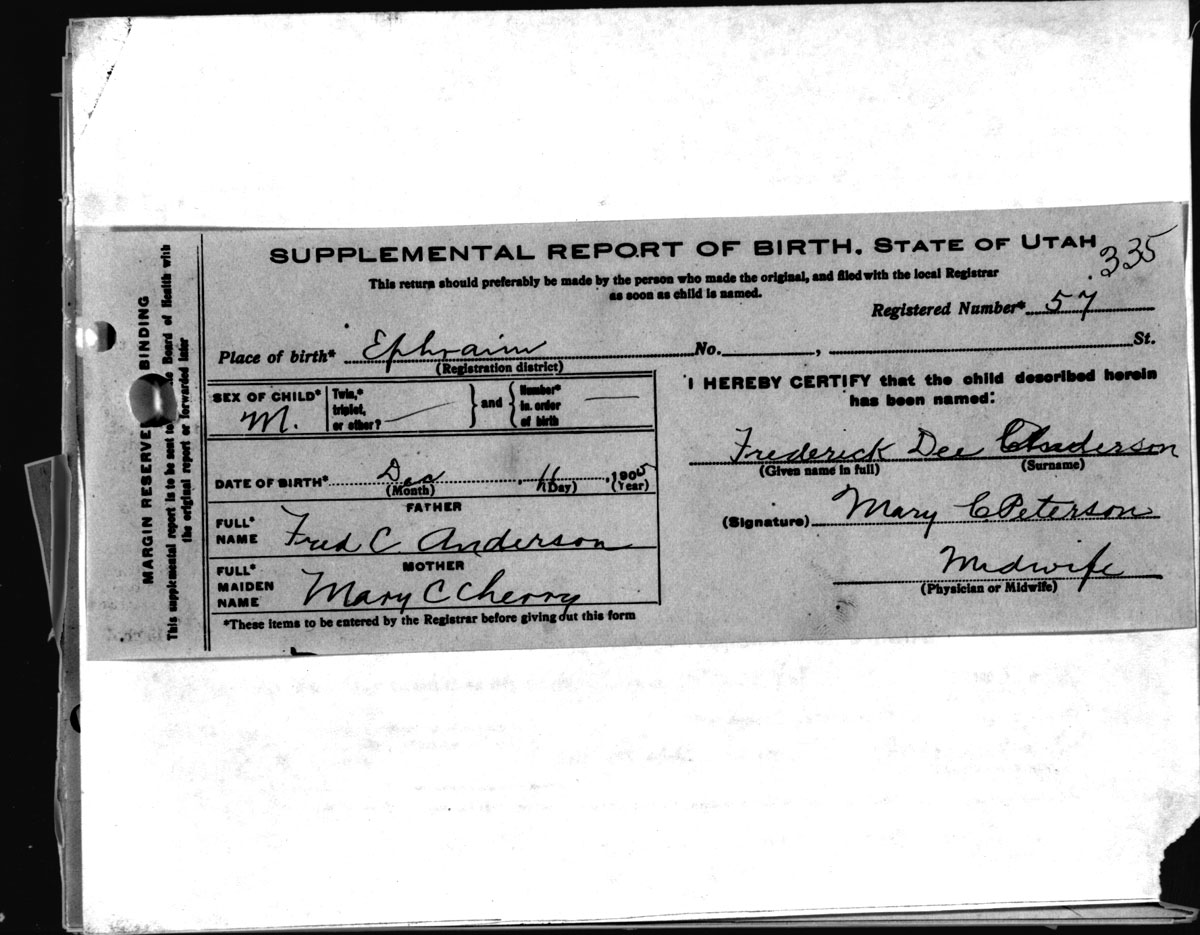 SUPPLEMENTAL REPORT OF BIRTH. STATE OF UTAH
335
This return should preferably be made by the person who made the original, and filed with the local Registrar
as soon as child is named.
Registered Number* 57
Place of birth* Ephraim No. , St.
(Registration district)
SEX OF CHILD* M.
Twin,* triplet, or other?
and
Number* in order of birth
DATE OF BIRTH* Dec 1905
(Month) (Day) (Year)
FATHER
FULL* NAME Fred C Anderson
MOTHER
FULL* MAIDEN NAME Mary C Cherry
*These items to be entered by the Registrar before giving out this form
I HEREBY CERTIFY that the child described herein
has been named:
Frederick Dee Anderson
(Given name in full) (Surname)
(Signature) Mary C Peterson
Midwife
(Physician or Midwife)
MARGIN RESERVE BINDING
This supplemental report is to be sent to Board of Health with
the original report or forwarded later